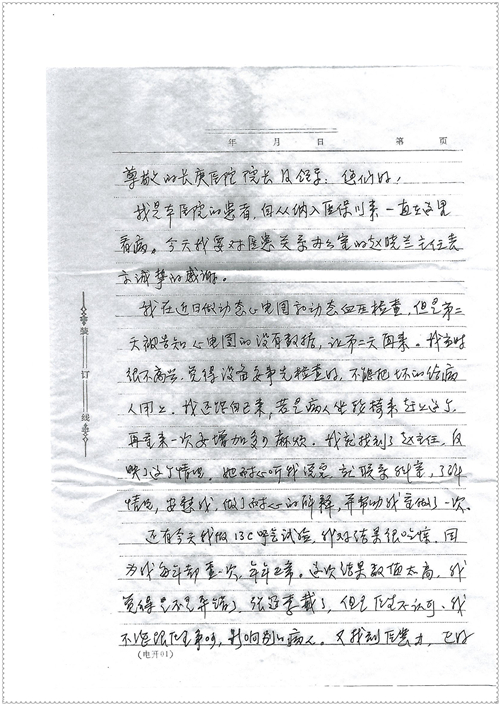 年 月 日 第 页
尊敬的长庚医院院长及领导：您们好！
我是本医院的患者，自从纳入医保以来一直在这里
看病。今天我要对医患关系办公室的赵晓兰主任表
示诚挚的感谢。
我在近日做动态心电图和动态血压检查，但是第二
天被告知心电图的没有数据，让第二天再来。我当时
很不高兴，觉得设备要事先检查好，不能把坏的给病
人用上。我还能自己来，若是病人坐轮椅来赶上这个
再重来一次要增加多少麻烦。我就找到了赵主任，反
映了这个情况，她耐心听我说完，就联系科室，了解
情况，安慰我，做了耐心的解释，并帮助我重做了一次。
还有今天我做13C呼气试验，我对结果很吃惊，因
为我每年都查一次，年年正常。这次结果数值太高，我
觉得是不是弄错了，张冠李戴了，但是不认可，我
不影响别的病人。又找到医患办，
装 订 线
（电开01）